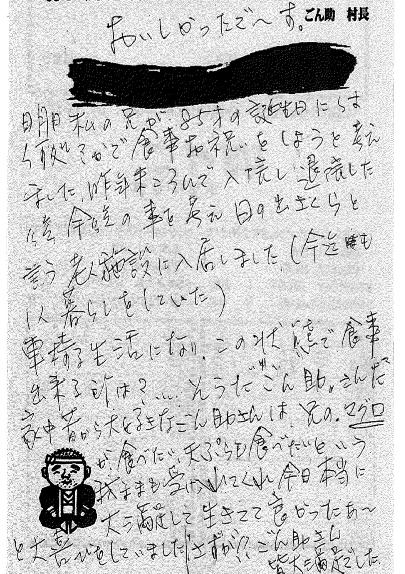 ごん助 村長
おいしかったで〜す。
明日私の兄が85才の誕生日になり
何処かで食事お祝いをしようと考え
ました。昨年末ころんで入院し退院した
後 今後の事を考え日の出さくらと
言う老人施設に入居しました。(今迄
1人暮らしをしていた)
車椅子生活になり、この状態で食事
出来る所は?.... そうだ"ごん助。さんだ
家中昔から大好きなごん助さんは、兄の、マグロ
が、食べたい、天ぷらも食べたいという
我ままも受け入れてくれ今日本当に
大満足して生きてて良かったあ〜
と大喜びをしていました! さすが!? ごん助さん
皆大満足でした